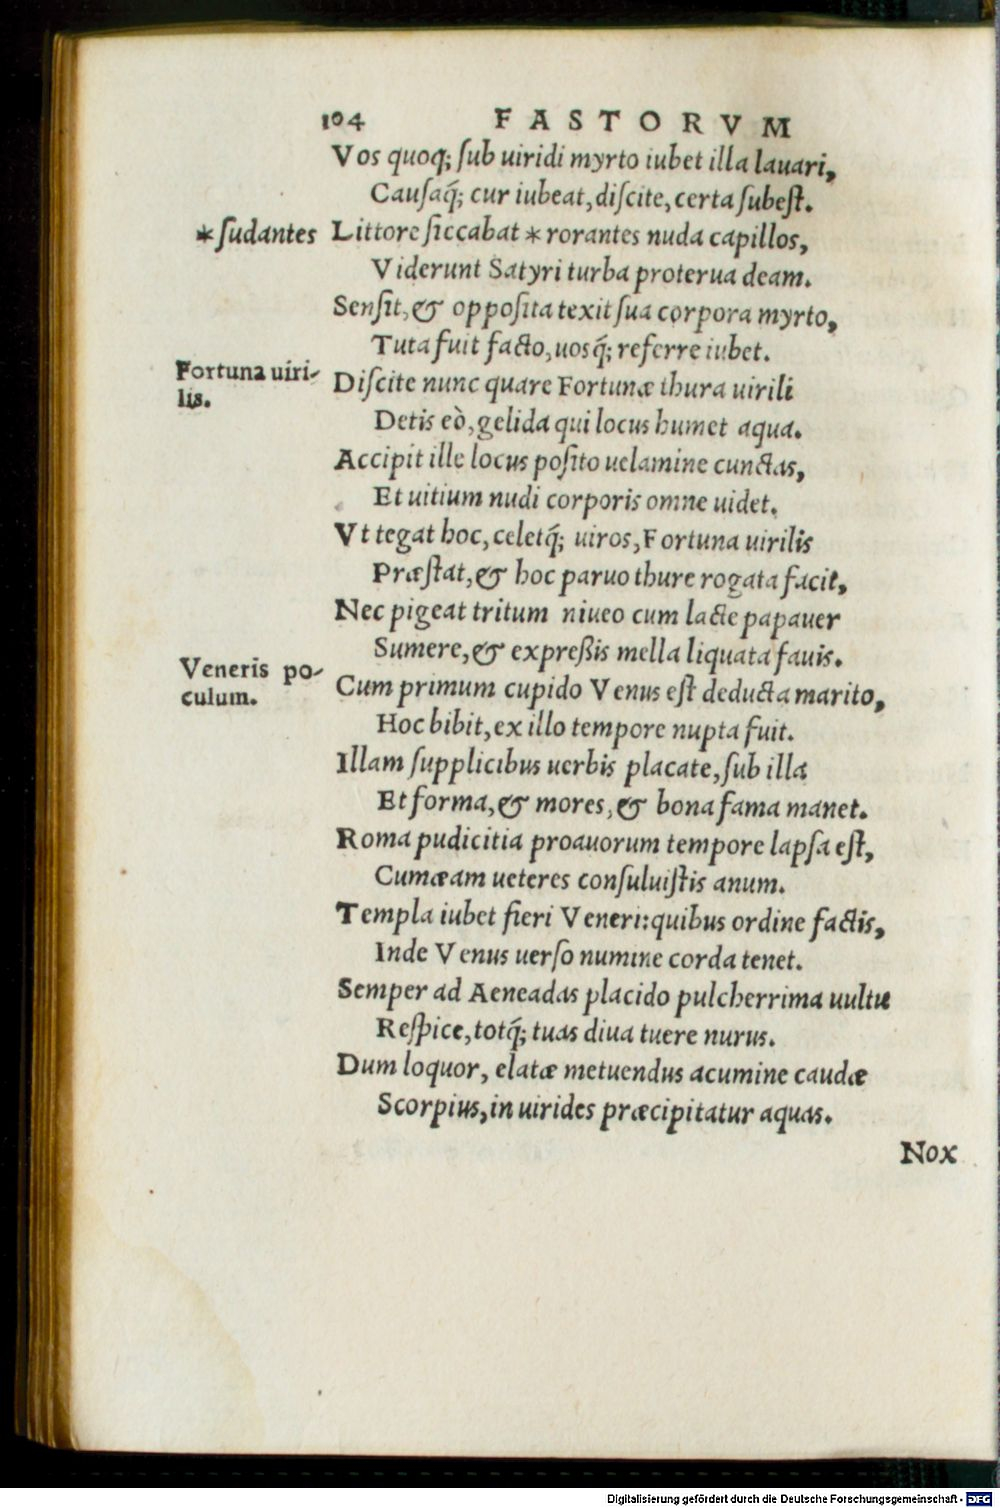 104 FASTORVM
Vos quoq; ſub uiridi myrto iubet illa lauari,
Cauſaq́; cur iubeat, diſcite, certa ſubeſt.
*ſudantes
Littore ſiccabat * rorantes nuda capillos,
Viderunt Satyri turba proterua deam.
Senſit, & oppoſita texit ſua corpora myrto,
Tuta fuit facto, uosq́; referre iubet.
Fortuna uiri-
lis.
Diſcite nunc quare Fortunæ thura uirili
Detis eò, gelida qui locus humet aqua.
Accipit ille locus poſito uelamine cunctas,
Et uitium nudi corporis omne uidet.
Vt tegat hoc, celetq́; uiros, Fortuna uirilis
Præſtat, & hoc paruo thure rogata facit,
Nec pigeat tritum niueo cum lacte papauer
Sumere, & expreſsis mella liquata fauis.
Veneris po-
culum.
Cum primum cupido Venus eſt deducta marito,
Hoc bibit, ex illo tempore nupta fuit.
Illam ſupplicibus uerbis placate, ſub illa
Et forma, & mores, & bona fama manet.
Roma pudicitia proauorum tempore lapſa eſt,
Cumæam ueteres conſuluiſtis anum.
Templa iubet fieri Veneri: quibus ordine factis,
Inde Venus uerſo numine corda tenet.
Semper ad Aeneadas placido pulcherrima uultu
Reſpice, totq́; tuas diua tuere nurus.
Dum loquor, elatæ metuendus acumine caudæ
Scorpius, in uirides præcipitatur aquas.
Nox
Digitalisierung gefördert durch die Deutsche Forschungsgemeinschaft - DFG